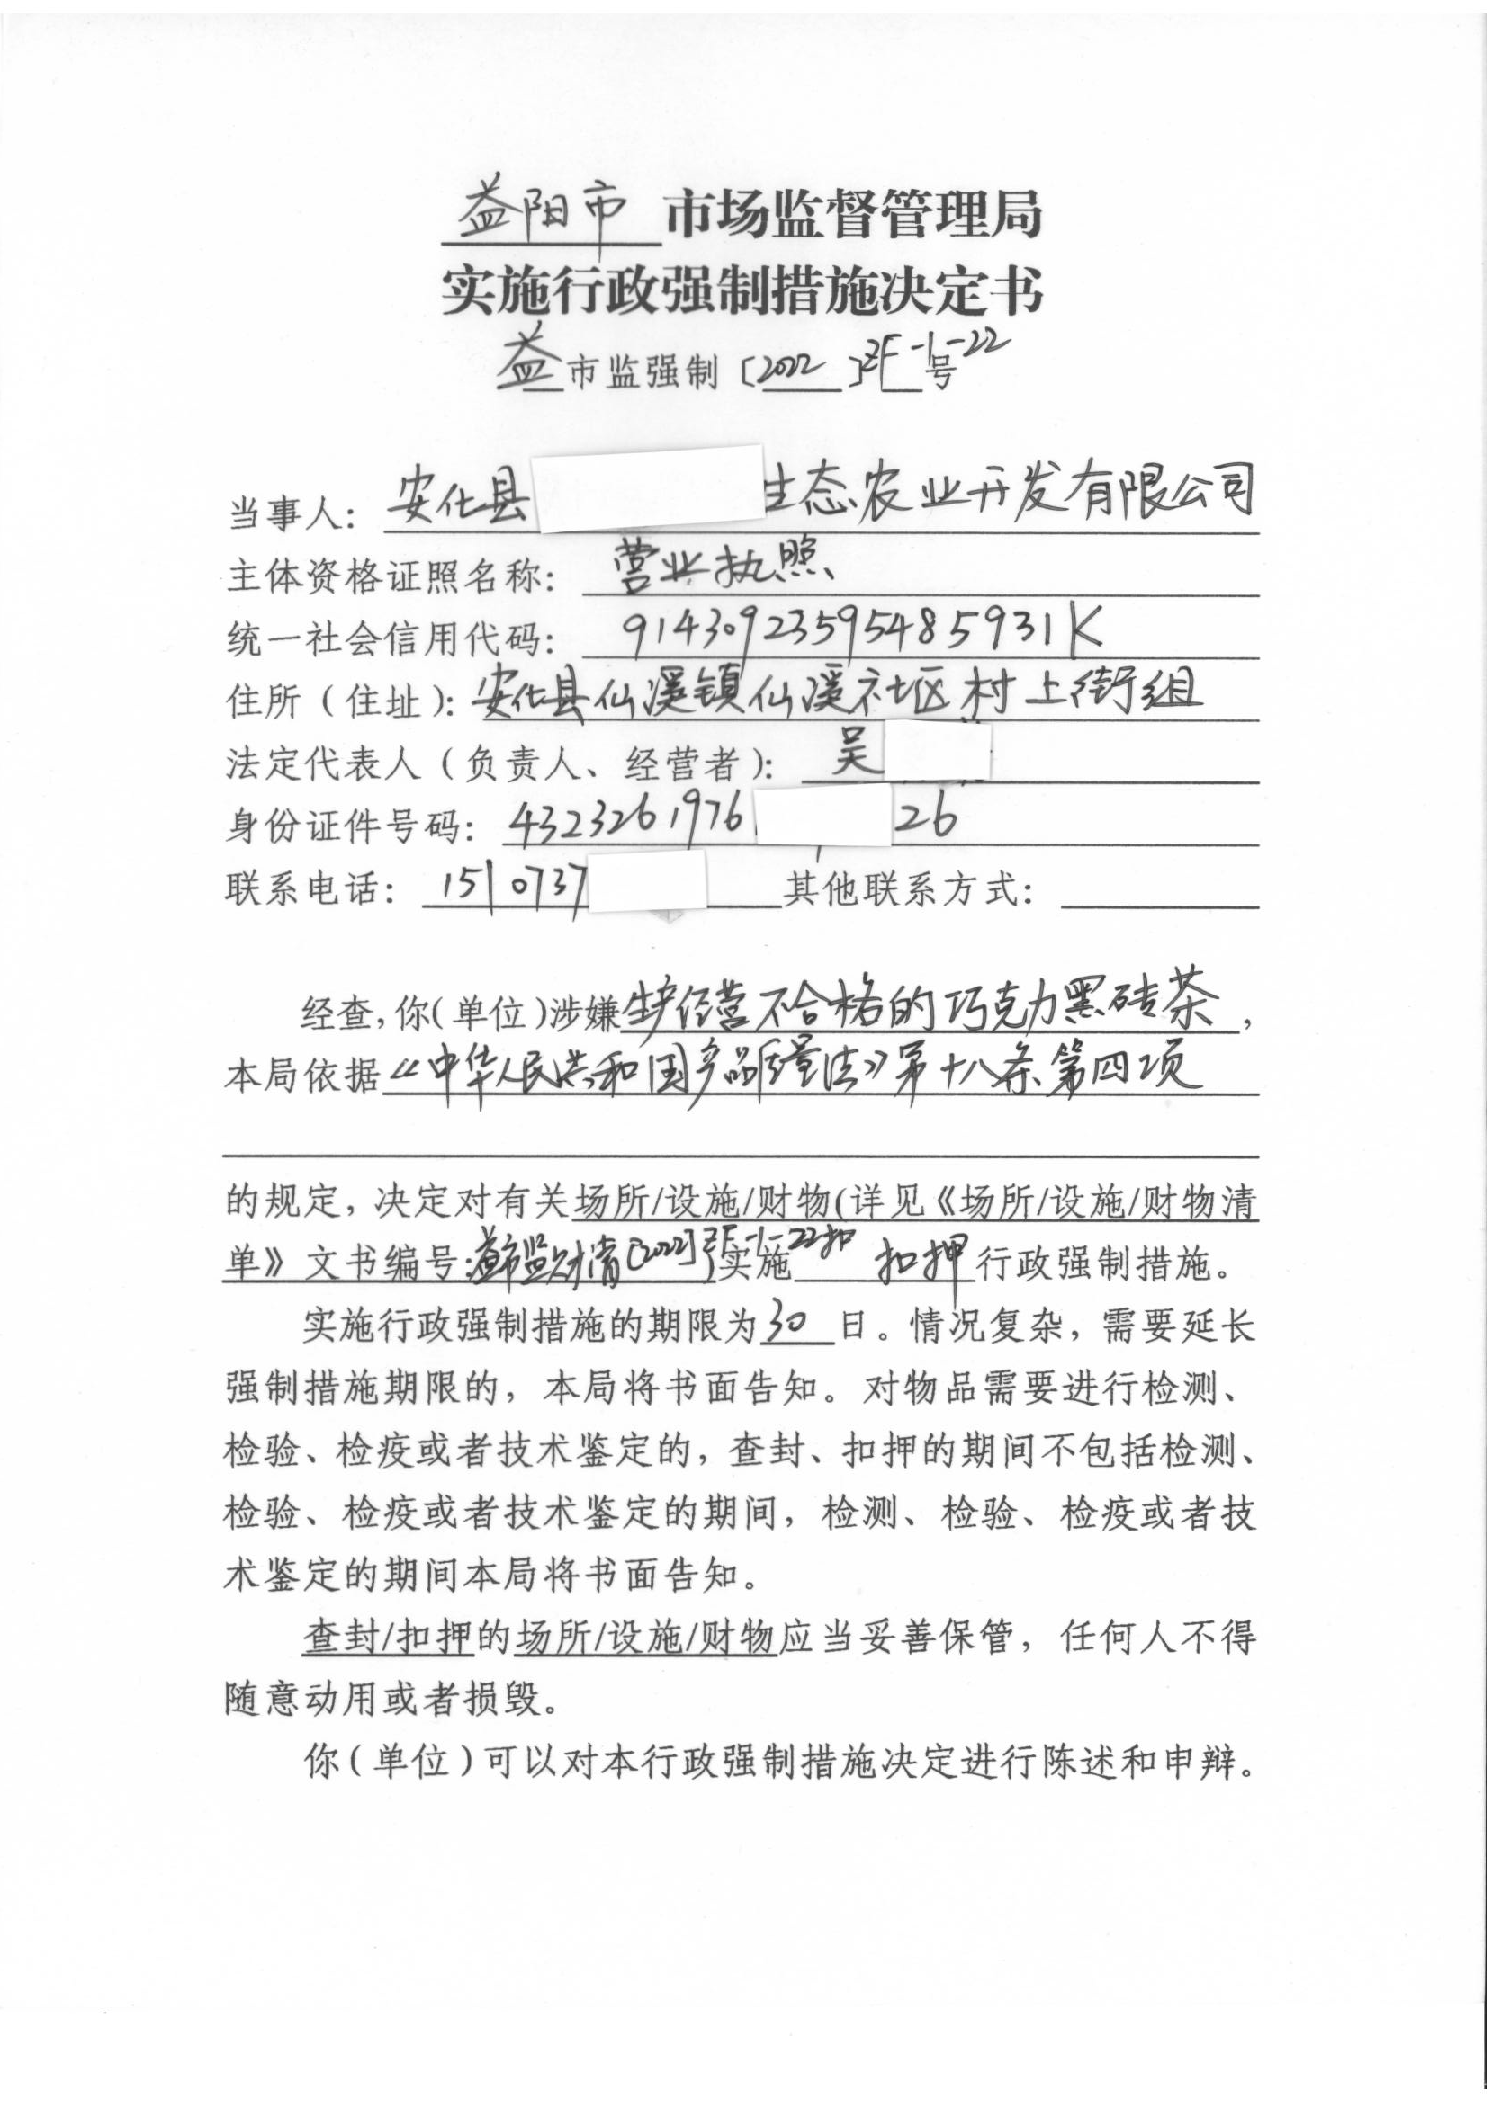 益阳市 市场监督管理局
实施行政强制措施决定书
益市监强制〔2022〕ZF-1-22号
当事人：安化县 生态农业开发有限公司
主体资格证照名称：营业执照
统一社会信用代码：91430923595485931K
住所（住址）：安化县仙溪镇仙溪社区村上街组
法定代表人（负责人、经营者）：吴
身份证件号码：4323261976 26
联系电话：1510737 其他联系方式：
经查，你（单位）涉嫌生产经营不合格的巧克力黑砖茶，
本局依据《中华人民共和国产品质量法》第十八条第四项
的规定，决定对有关场所/设施/财物（详见《场所/设施/财物清
单》文书编号：益市监财清〔2022〕ZF-1-22扣 实施 扣押 行政强制措施。
实施行政强制措施的期限为30日。情况复杂，需要延长
强制措施期限的，本局将书面告知。对物品需要进行检测、
检验、检疫或者技术鉴定的，查封、扣押的期间不包括检测、
检验、检疫或者技术鉴定的期间，检测、检验、检疫或者技
术鉴定的期间本局将书面告知。
查封/扣押的场所/设施/财物应当妥善保管，任何人不得
随意动用或者损毁。
你（单位）可以对本行政强制措施决定进行陈述和申辩。